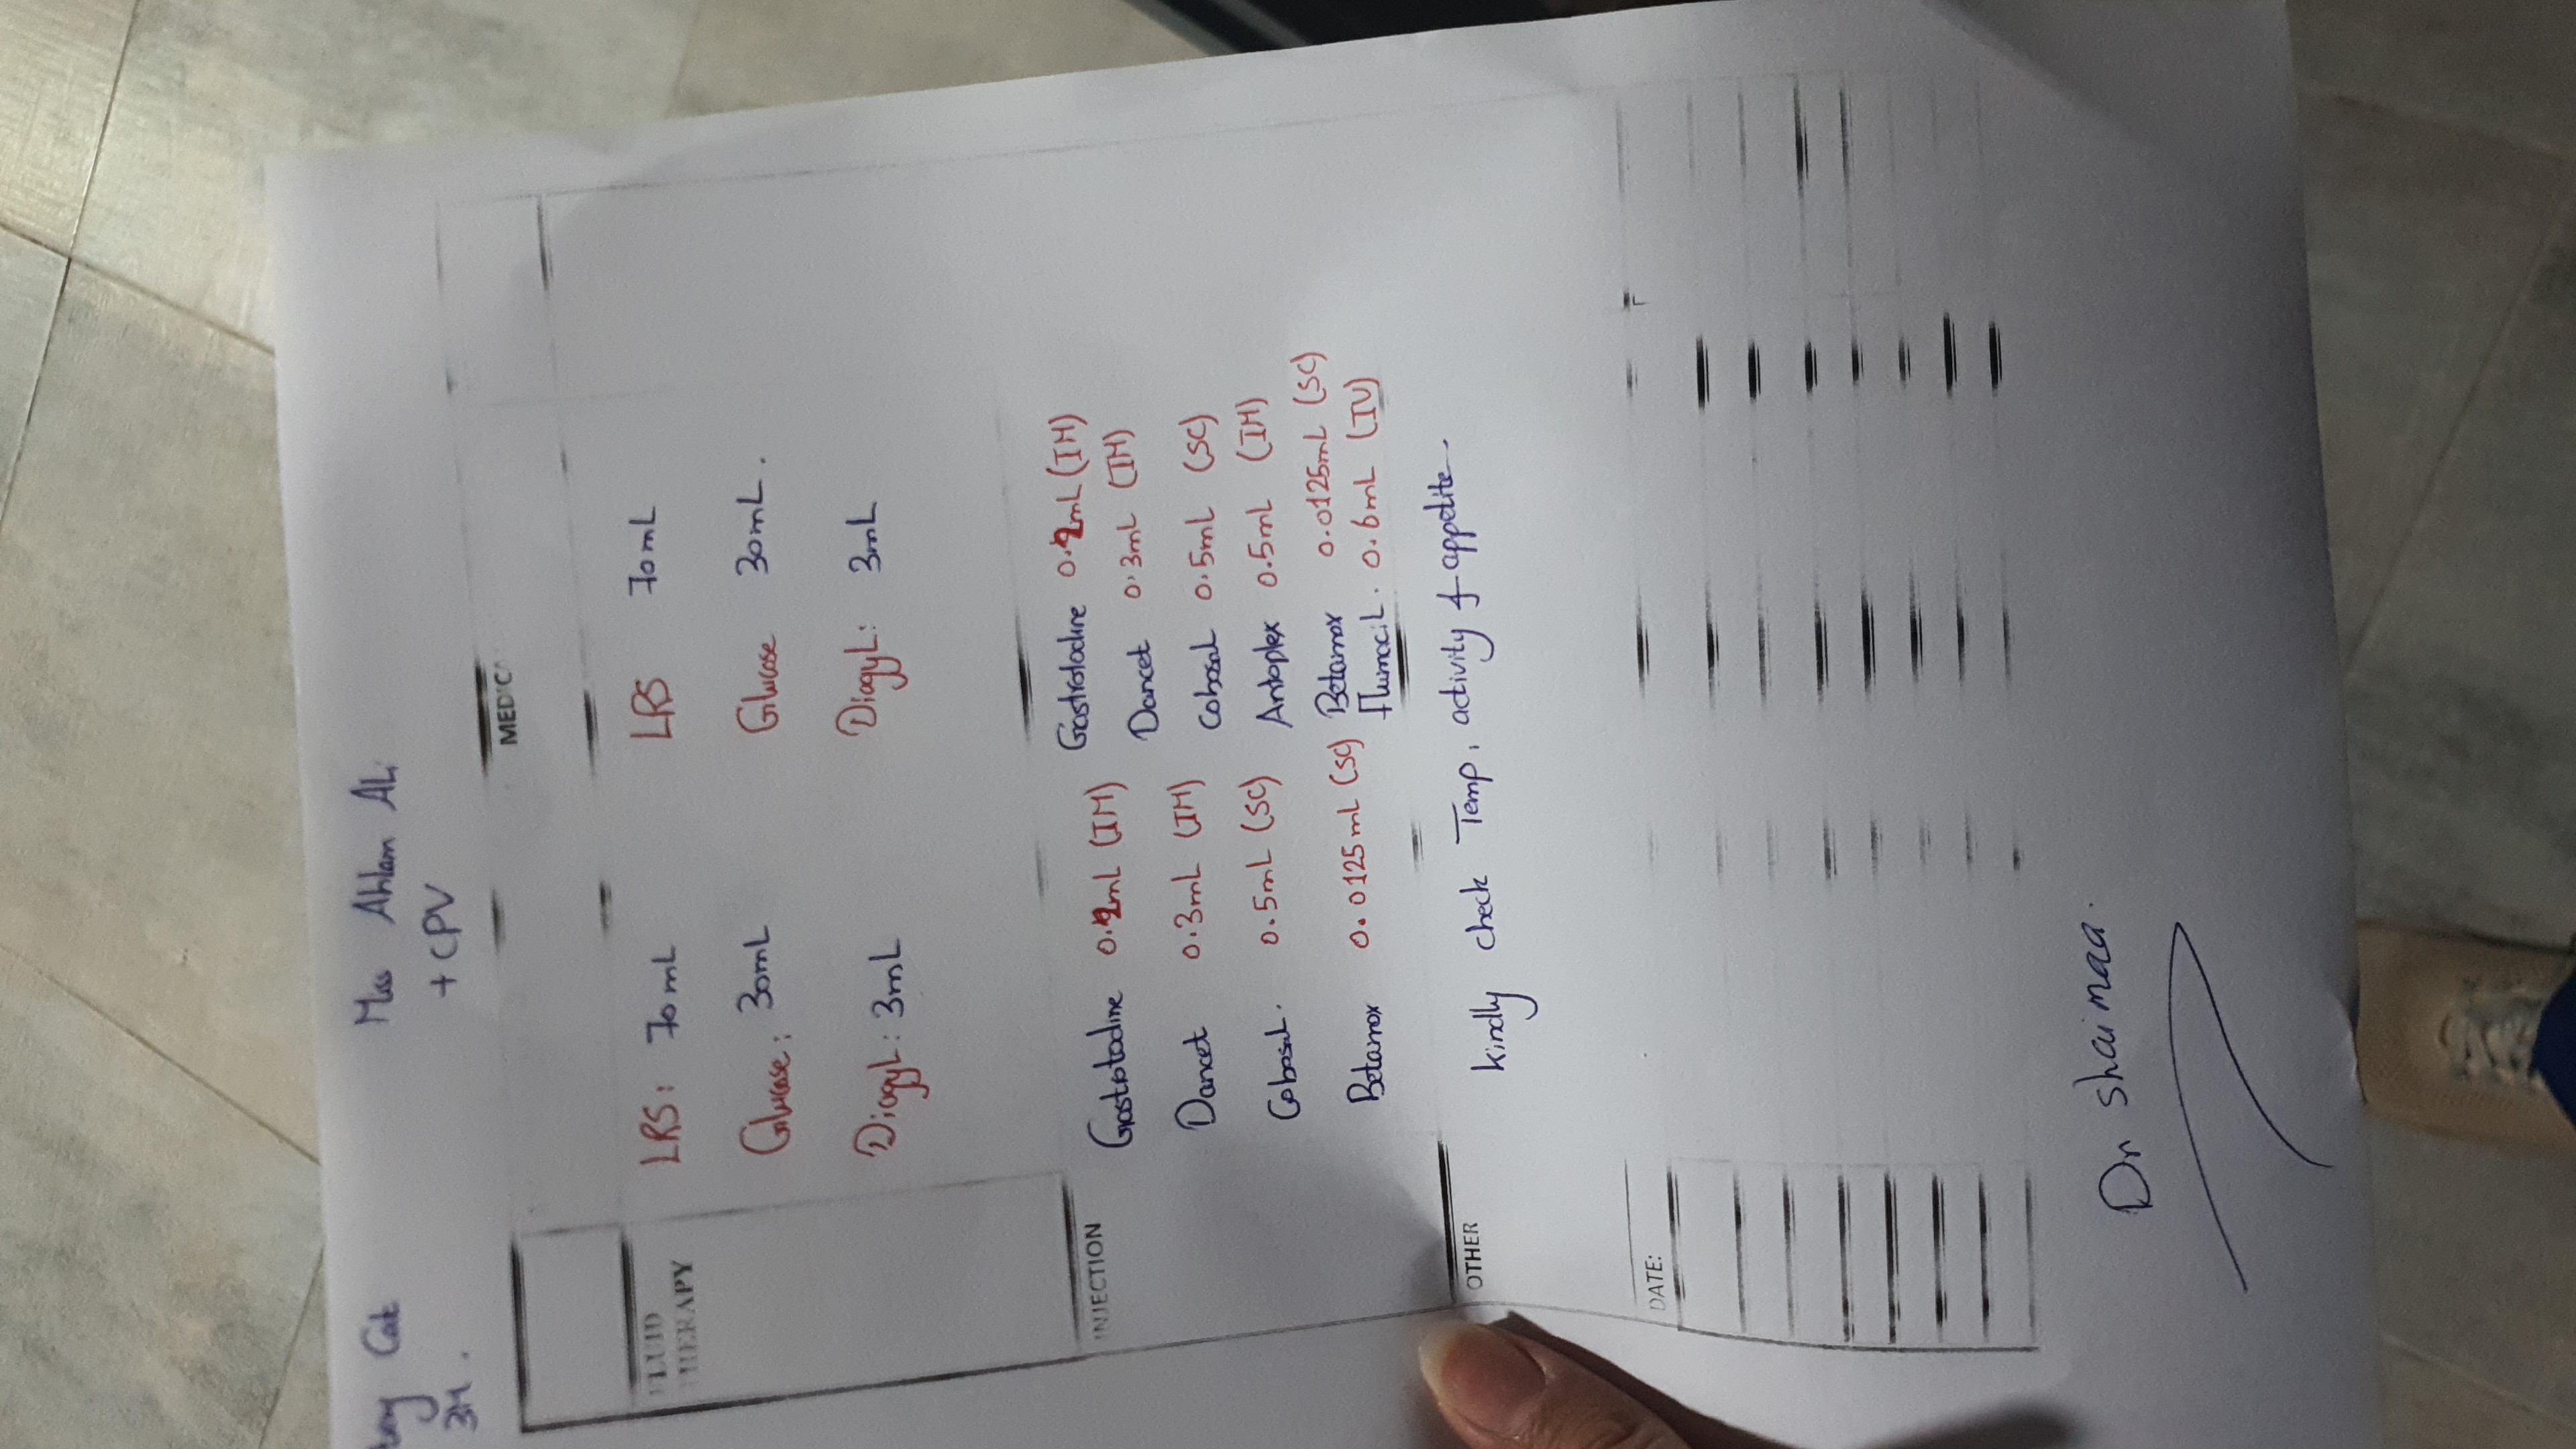 Cat Miss Ahlam AL.
3M. + CPV
MEDICA
FLUID THERAPY
LRS: 70mL LRS 70mL
Glucose: 30mL Glucose 30mL.
DiagyL: 3mL DiagyL: 3mL
INJECTION
Gastrotadine 0.2mL (IM) Gastrotadine 0.2mL (IM)
Dancet 0.3mL (IM) Dancet 0.3mL (IM)
CobosaL. 0.5mL (SC) CobosaL 0.5mL (SC)
Antoplex 0.5mL (IM)
Betamox 0.0125mL (SC) Betamox 0.0125mL (SC)
FlumaciL. 0.6mL (IV)
OTHER
kindly check Temp, activity & appetite
DATE:
Dr shaimaa.